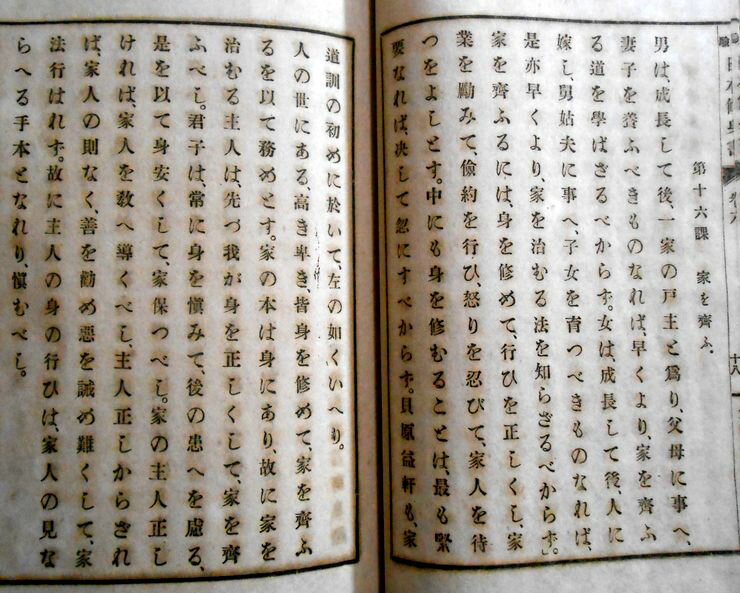 日本修身書
卷六
十八
第十六課　家を齊ふ、
男は、成長して後、一家の戸主と爲り、父母に事へ、
妻子を養ふべきものなれば、早くより、家を齊ふ
る道を學ばざるべからず。女は、成長して後、人に
嫁し、舅姑夫に事へ、子女を育つべきものなれば、
是亦早くより、家を治むる法を知らざるべからず。
家を齊ふるには、身を修めて、行ひを正しくし、家
業を勵みて、儉約を行ひ、怒りを忍びて、家人を待
つをよしとす。中にも身を修むることは、最も緊
要なれば、決して忽にすべからず。貝原益軒も、家
道訓の初めに於いて、左の如くいへり。
人の世にある、高き卑き、皆身を修めて、家を齊ふ
るを以て務めとす。家の本は身にあり、故に家を
治むる主人は、先づ我が身を正しくして、家を齊
ふべし。君子は、常に身を愼みて、後の患へを慮る、
是を以て身安くして、家保つべし。家の主人正し
ければ、家人を敎へ導くべし、主人正しからざれ
ば、家人の則なく、善を勸め惡を誡め難くして、家
法行はれず。故に主人の身の行ひは、家人の見な
らへる手本となれり、愼むべし。